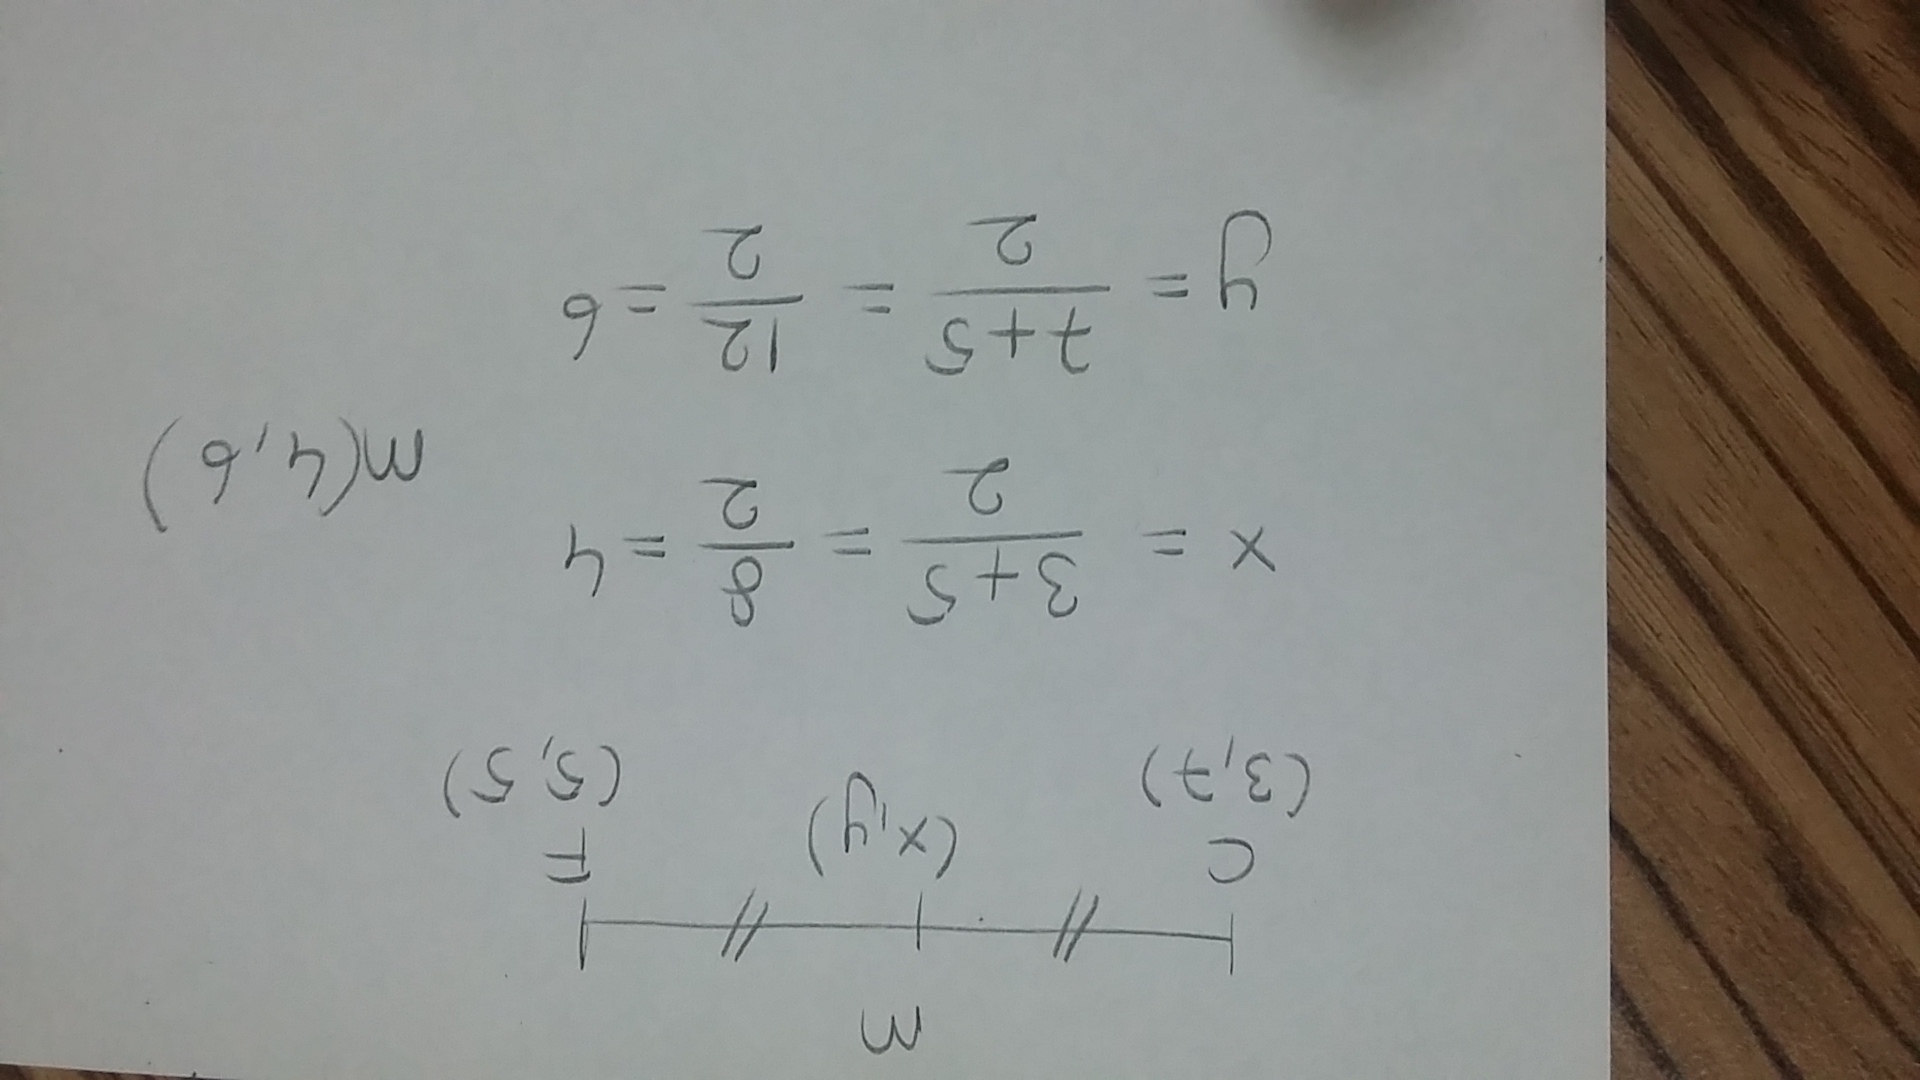 m
C F
(3,7) (x,y) (5,5)
x = 3+5/2 = 8/2 = 4
m(4,6)
y = 7+5/2 = 12/2 = 6